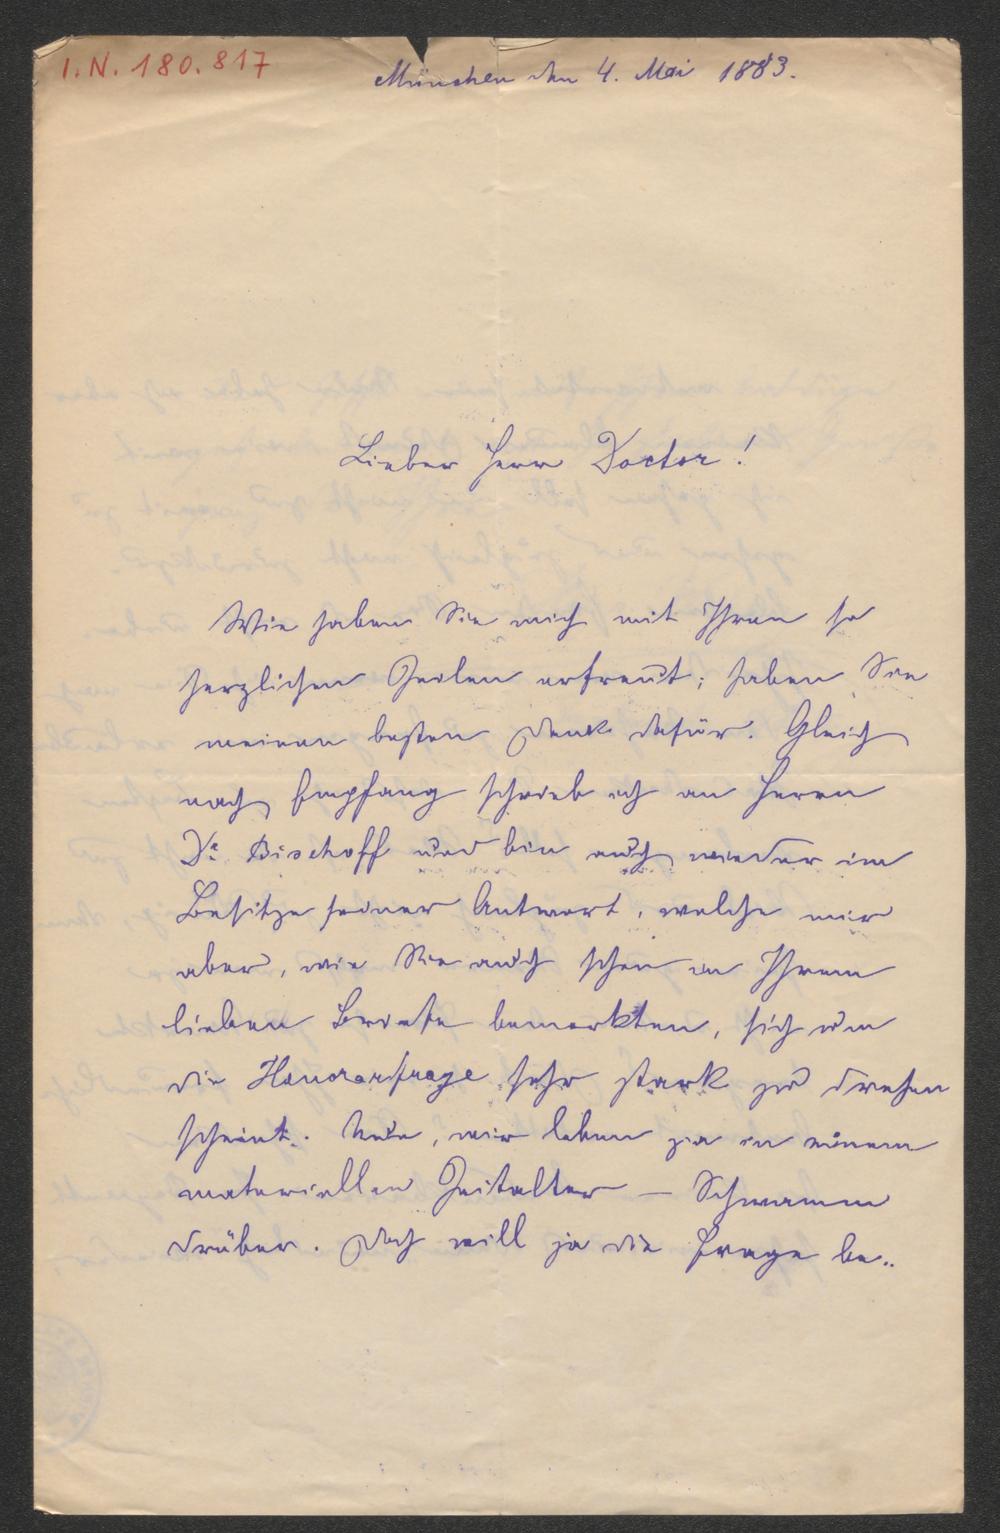 I.N. 180.817
München den 4. Mai 1883.
Lieber Herr Doctor!
Wie haben Sie mich mit Ihren so
herzlichen Zeilen erfreut; haben Sie
meinen besten Dank dafür. Gleich
nach Empfang schrieb ich an Herrn
Dr. Bischoff und bin auch wieder im
Besitze seiner Antwort, welche mir
aber, wie Sie auch schon in Ihrem
lieben Briefe bemerkten, sich um
die Honorarfrage sehr stark zu drehen
scheint. Nun, wir leben ja in einem
materiellen Zeitalter — Schwamm
drüber. Doch will ja die Frage be..